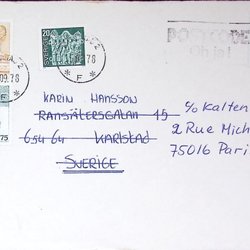 20
09.78
* F *
75
POSTCODE
KARIN HANSSON
RANSÄTERSGATAN 15
654 64 KARLSTAD
SVERIGE
c/o Kalten
2 Rue Mich
75016 Pari